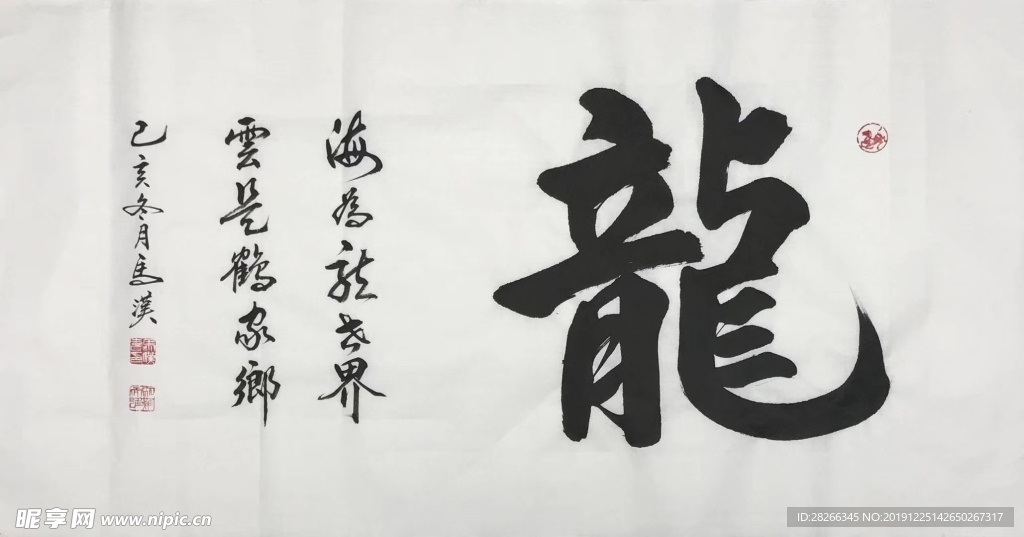 龍
海為龍世界
雲是鶴家鄉
己亥冬月馬漢
昵享网 www.nipic.cn
ID:28266345 NO:20191225142650267317